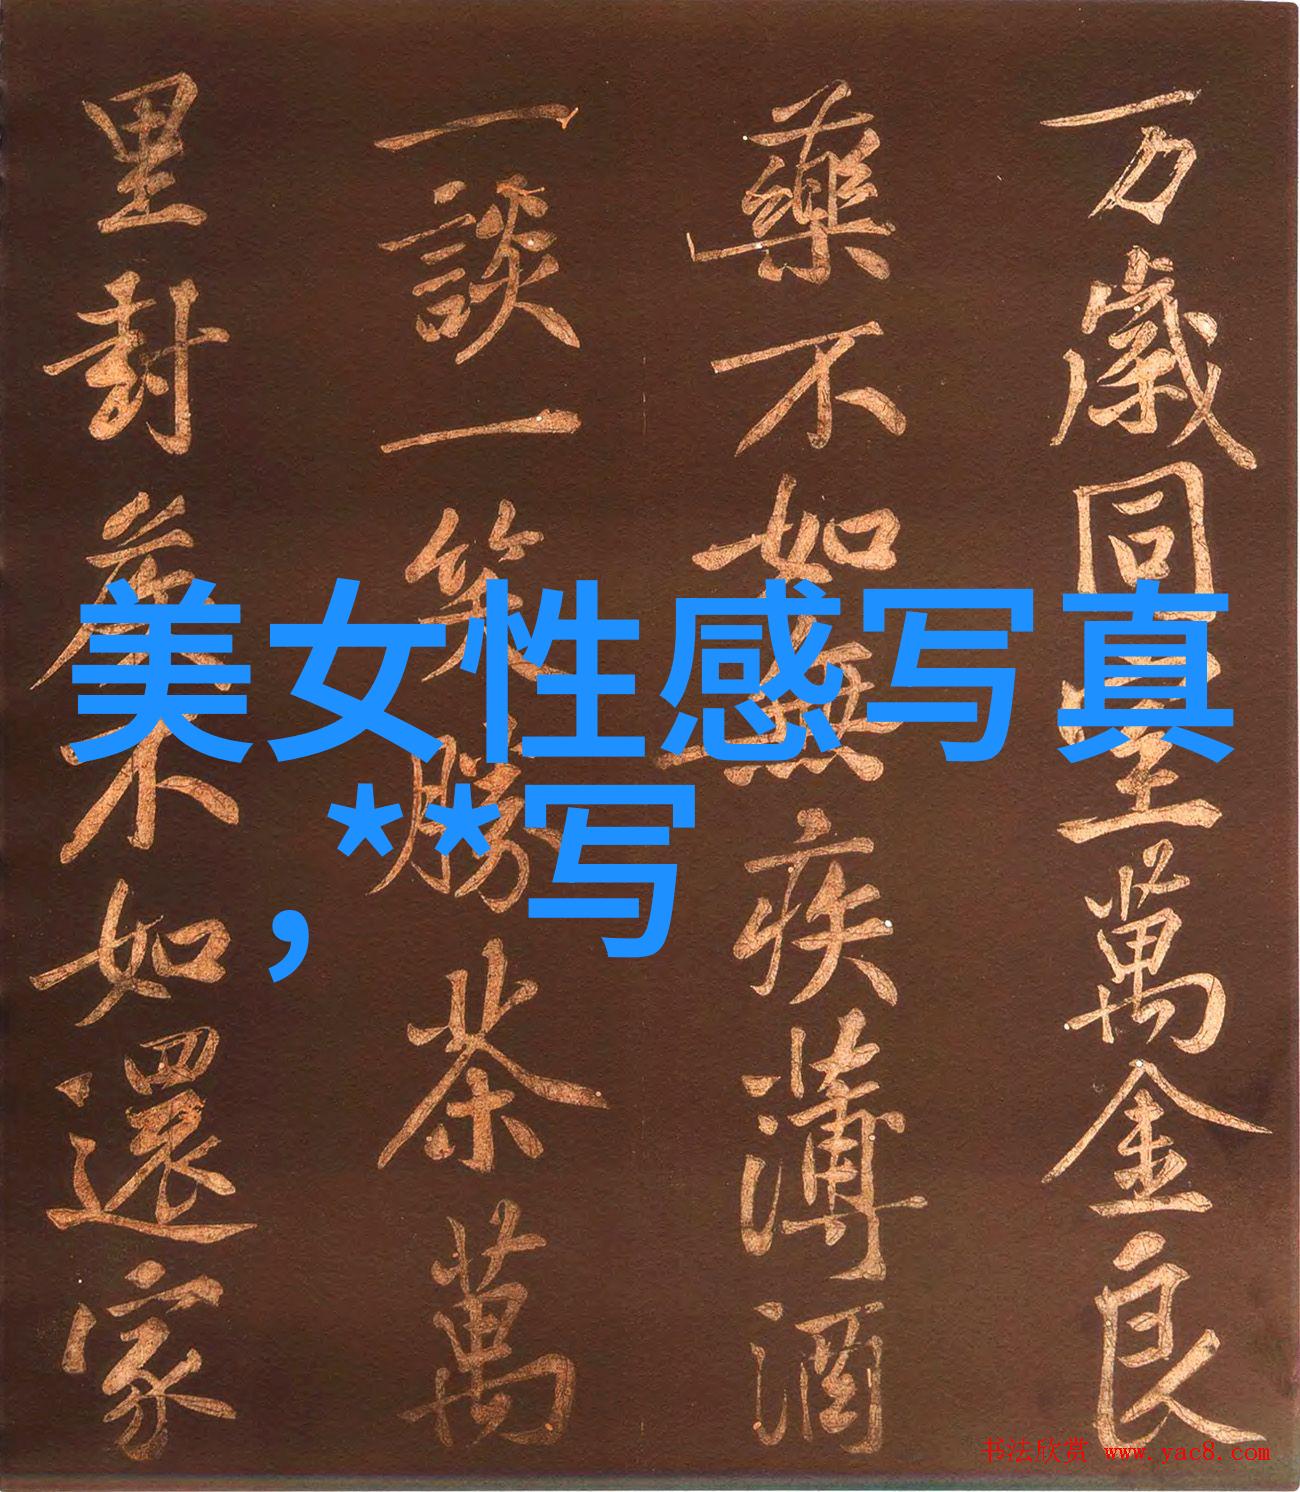 万歲同室萬金良
藥不如無疾薄酒
一談一笑勝茶萬
里封矦不如還家
美女性感写真
,**写
书法欣赏 www.yac8.com